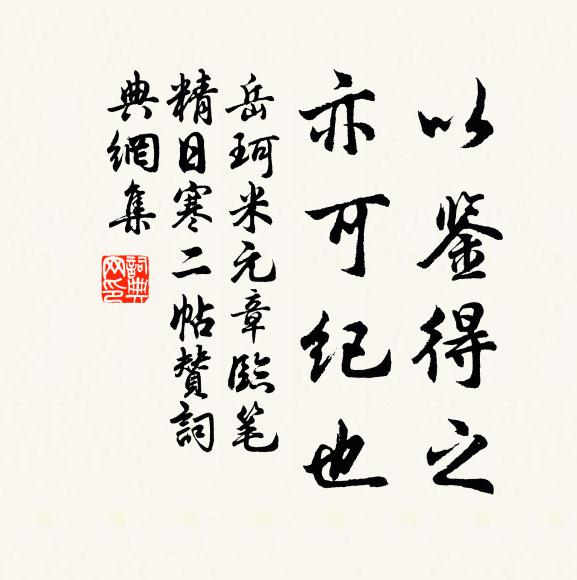 以鉴得之
亦可纪也
岳珂米元章臨笔
精日寒二帖赞詞
典網集
詞典网印